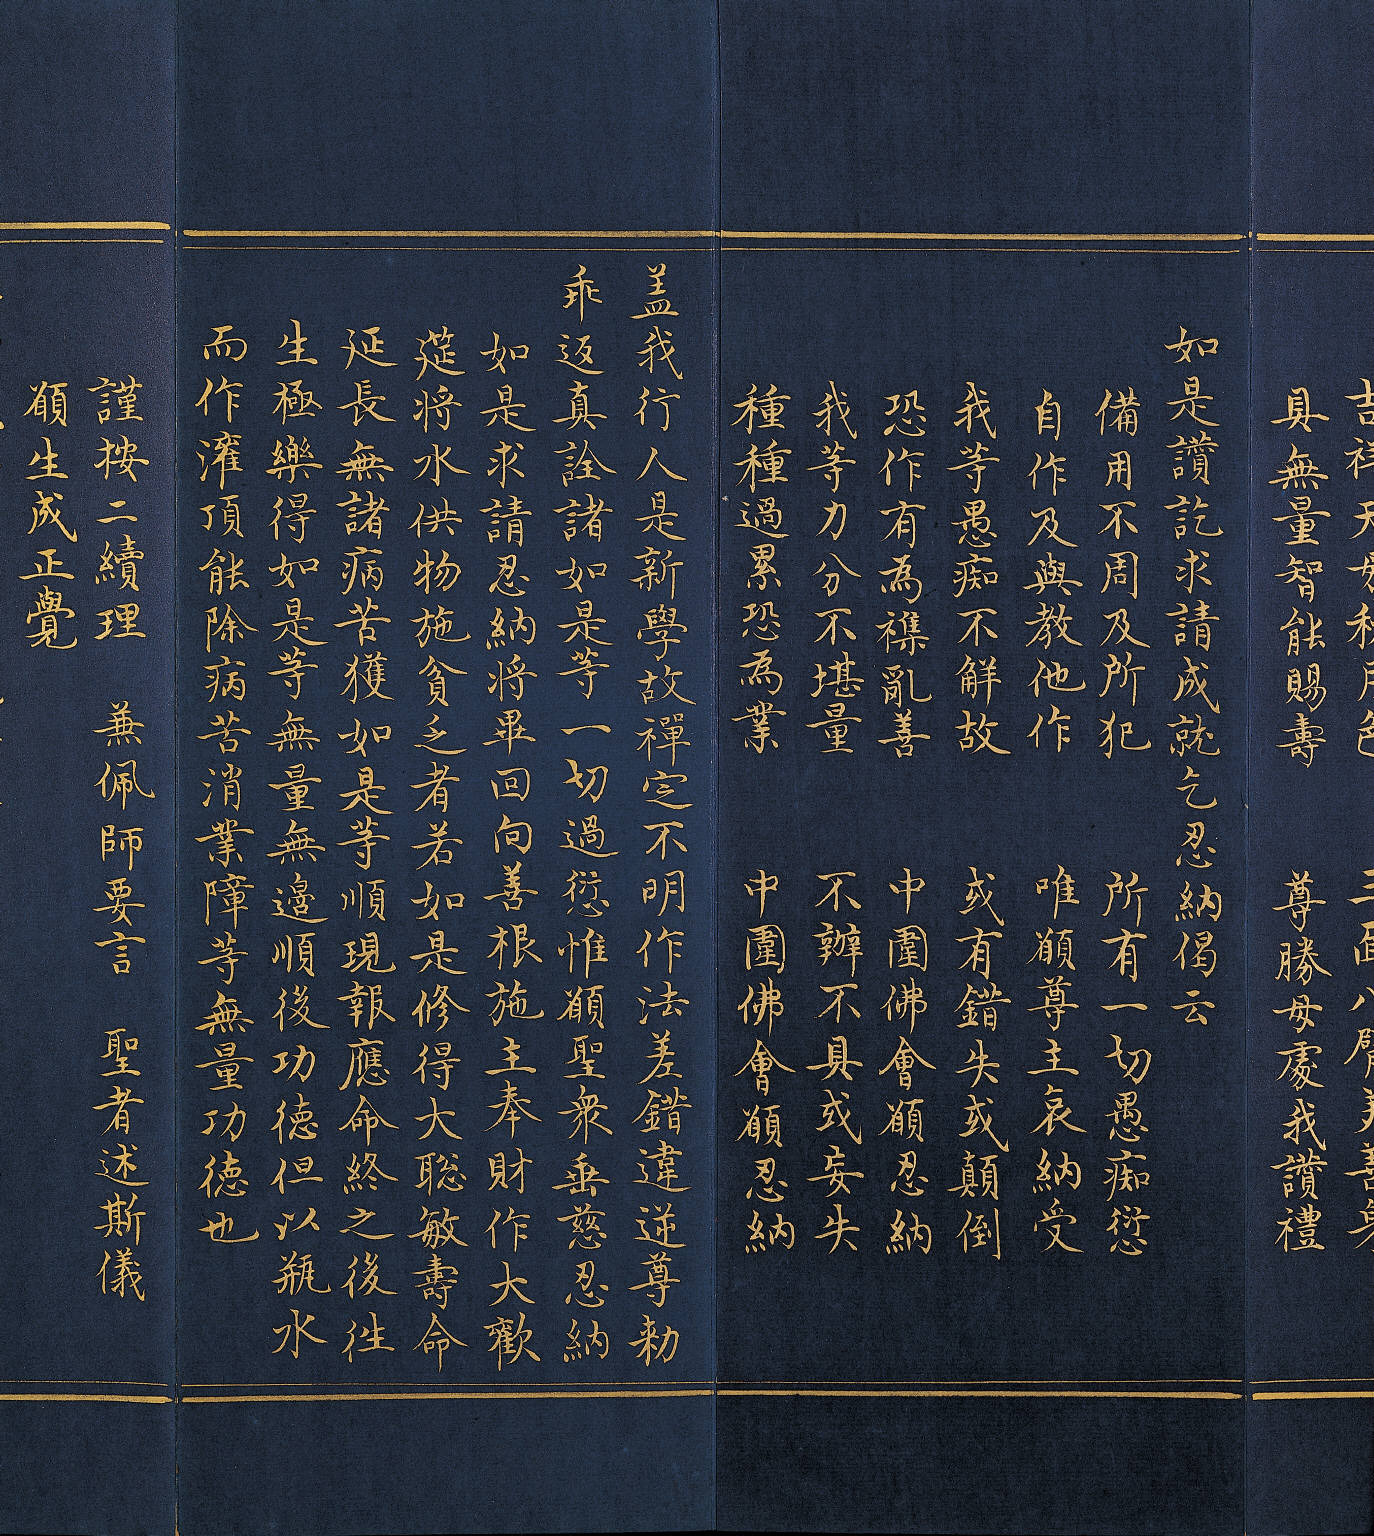 吉祥天母秋月色　三面八臂美善身
具無量智能賜壽　尊勝母處我讚禮
如是讚訖求請成就乞忍納偈云
備用不周及所犯　所有一切愚痴愆
自作及與教他作　唯願尊主哀納受
我等愚痴不解故　或有錯失或顛倒
恐作有為襍亂善　中圍佛會願忍納
我等力分不堪量　不辦不具或妄失
種種過累恐為業　中圍佛會願忍納
盖我行人是新學故禪定不明作法差錯違逆尊勅
乖返真詮諸如是等一切過愆惟願聖衆垂慈忍納
如是求請忍納將畢回向善根施主奉財作大歡
莚將水供物施貧乏者若如是修得大聡敏壽命
延長無諸病苦獲如是等順現報應命終之後徃
生極樂得如是等無量無邊順後功德但以瓶水
而作灌頂能除病苦消業障等無量功德也
謹按二續理　兼佩師要言　聖者述斯儀
願生成正覺